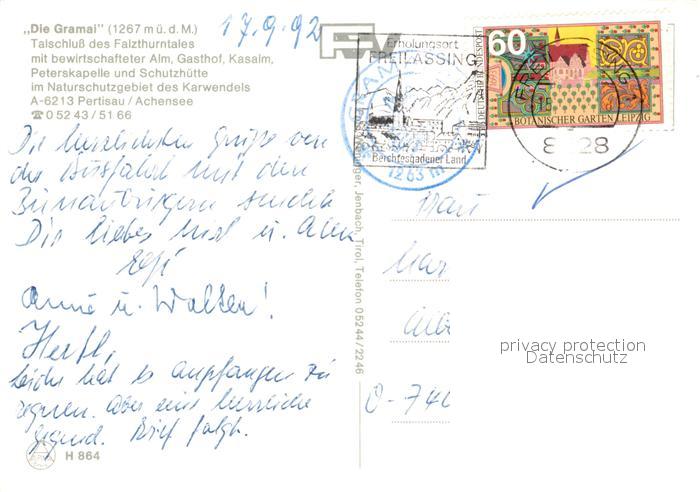 „Die Gramai" (1267 m ü. d. M.)
Talschluß des Falzthurntales
mit bewirtschafteter Alm, Gasthof, Kasalm,
Peterskapelle und Schutzhütte
im Naturschutzgebiet des Karwendels
A-6213 Pertisau / Achensee
☎ 0 52 43 / 51 66
17.9.92
Die herzlichsten Grüße von
der Busfahrt mit den
sendet
Dir liebes und u. Allen
Anni u. Walter!
leicht hat es angefangen zu
regnen. Aber eine herrliche
Gegend. Brief folgt.
H 864
Erholungsort
FREILASSING
Berchtesgadener Land
1263 m
60
DEUTSCHE BUNDESPOST
BOTANISCHER GARTEN LEIPZIG
8228
Jenbach, Tirol, Telefon 05244/2246
Frau
privacy protection
Datenschutz